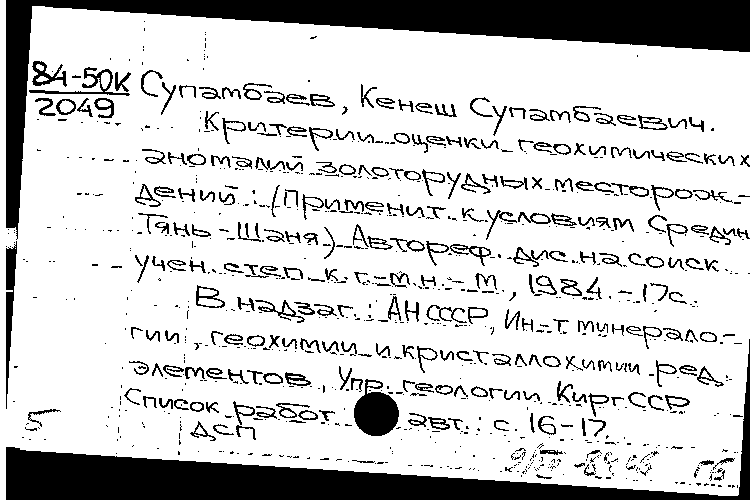 84-50К
2049
Супатбаев, Кенеш Супатбаевич.
Критерии оценки геохимических
аномалий золоторудных месторож-
дений : (Применит. к условиям Средин.
Тянь-Шаня) Автореф. дис. на соиск.
учен. степ. к. г.-м. н. - М., 1984. - 17с.
В надзаг.: АН СССР, Ин-т минерало-
гии, геохимии и кристаллохимии ред.
элементов, Упр. геологии Кирг ССР
Список работ авт.: с. 16-17
ДСП
5